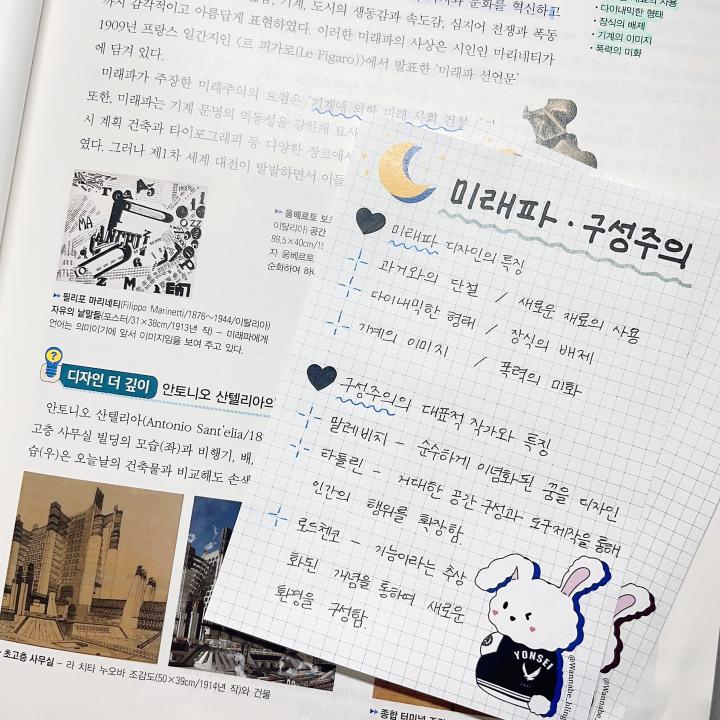 까지 감각적이고 아름답게 표현하였다. 이러한 미래파의 사상은 시인인 마리네티가
1909년 프랑스 일간지인 〈르 피가로(Le Figaro)〉에서 발표한 '미래파 선언문'
에 담겨 있다.
미래파가 주장한 미래주의의 요점은 '기계에 의한 미래 사회 건설
또한, 미래파는 기계 문명의 역동성을 강하게 묘사
시 계획 건축과 타이포그래피 등 다양한 장르에서
였다. 그러나 제1차 세계 대전이 발발하면서 이들
• 다이내믹한 형태
• 장식의 배제
• 기계의 이미지
• 폭력의 미화
▸▸ 움베르토 보
이탈리아) 공간
자 움베르토
순화하여 하
▸▸ 필리포 마리네티(Filippo Marinetti/1876~1944/이탈리아)
자유의 낱말들(포스터/31×38cm/1913년 작) – 미래파에게
언어는 의미이기에 앞서 이미지임을 보여 주고 있다.
디자인 더 깊이 안토니오 산텔리아의
안토니오 산텔리아(Antonio Sant'elia/18
고층 사무실 빌딩의 모습(좌)과 비행기, 배,
습(우)은 오늘날의 건축물과 비교해도 손색
초고층 사무실 – 라 치타 누오바 조감도(50×39cm/1914년 작)와 건물
▸▸ 종합 터미널
미래파 · 구성주의
미래파 디자인의 특징
과거와의 단절 / 새로운 재료의 사용
다이내믹한 형태 / 장식의 배제
기계의 이미지 / 폭력의 미화
구성주의의 대표적 작가와 특징
말레비치 – 순수하게 이념화된 꿈을 디자인
타틀린 – 거대한 공간 구성과 도구제작을 통해
인간의 행위를 확장함.
로드첸코 – 기능이라는 추상
화된 개념을 통하여 새로운
환경을 구성함.
YONSEI